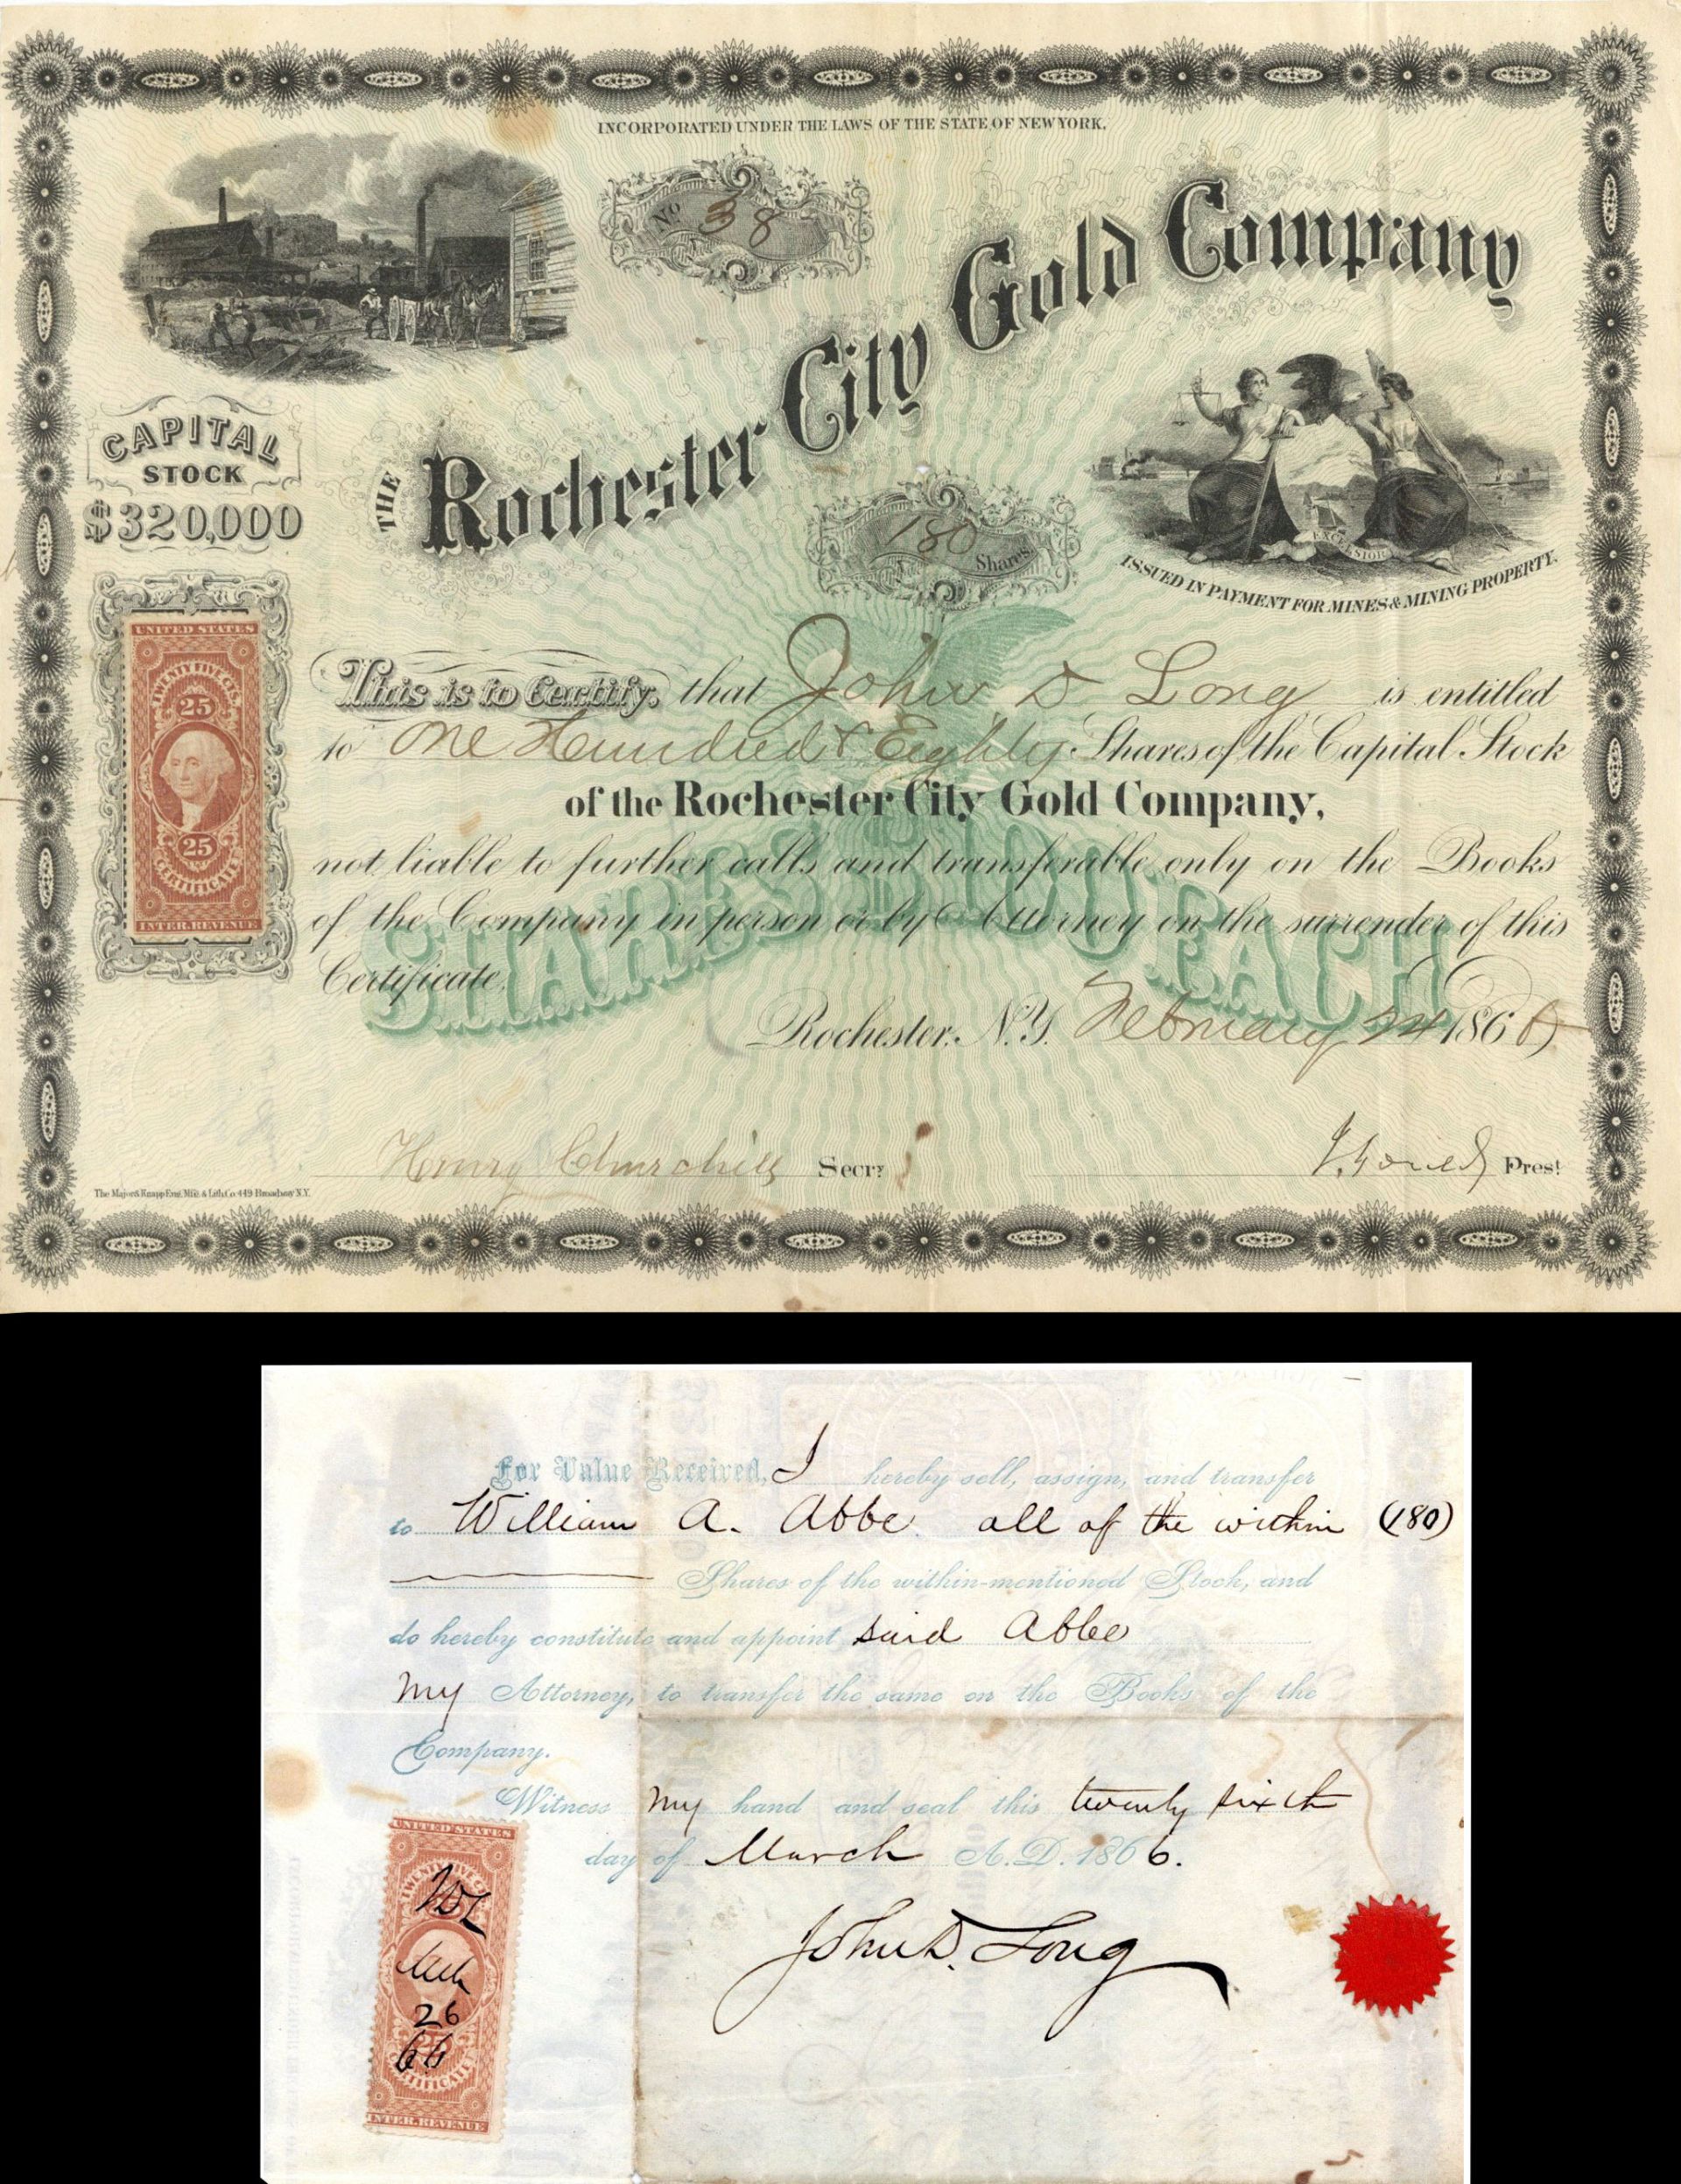 INCORPORATED UNDER THE LAWS OF THE STATE OF NEW YORK.
No 38
THE Rochester City Gold Company
CAPITAL
STOCK
$320,000
180 Shares
EXCELSIOR
ISSUED IN PAYMENT FOR MINES & MINING PROPERTY.
UNITED STATES
TWENTY FIVE CTS.
25
25
CERTIFICATE
INTER. REVENUE
This is to Certify, that John D Long is entitled
to One Hundred & Eighty Shares of the Capital Stock
of the Rochester City Gold Company,
not liable to further calls and transferable only on the Books
of the Company in person or by Attorney on the surrender of this
Certificate.
SHARES $100 EACH
Rochester, N.Y. February 24 1866
Henry Churchill Secry
Prest
The Major & Knapp Eng. Mfg. & Lith. Co. 449 Broadway N.Y.
For Value Received, I hereby sell, assign, and transfer
to William A. Abbe all of the within (180)
Shares of the within-mentioned Stock, and
do hereby constitute and appoint said Abbe
my Attorney, to transfer the same on the Books of the
Company.
Witness my hand and seal this twenty sixth
day of March A.D. 1866.
John D. Long
UNITED STATES
TWENTY FIVE CTS.
26
66
25
CERTIFICATE
INTER. REVENUE